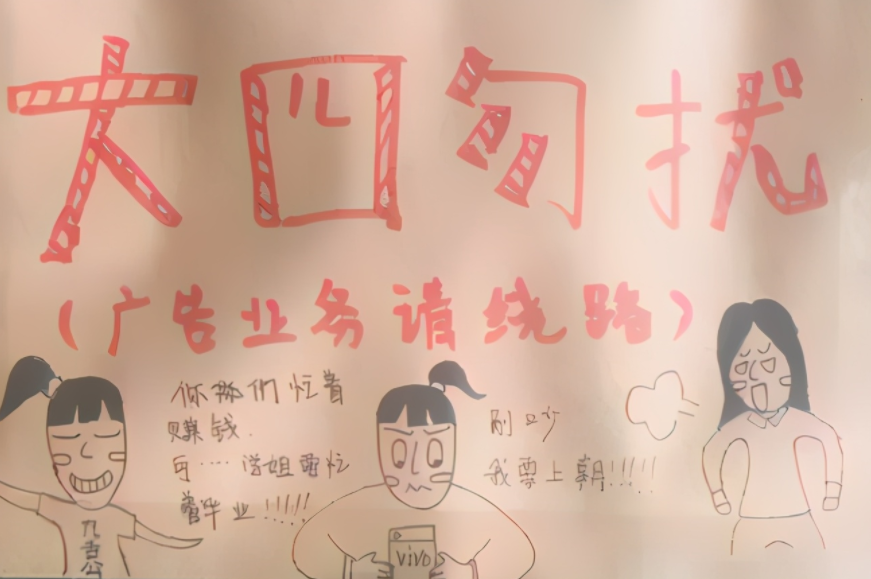 大四勿扰
(广告业务请绕路)
你都们忙着
赚钱.
可····学姐要忙
着毕业!!!!!
别吵
我要上朝!!!!!
九吉公
vivo